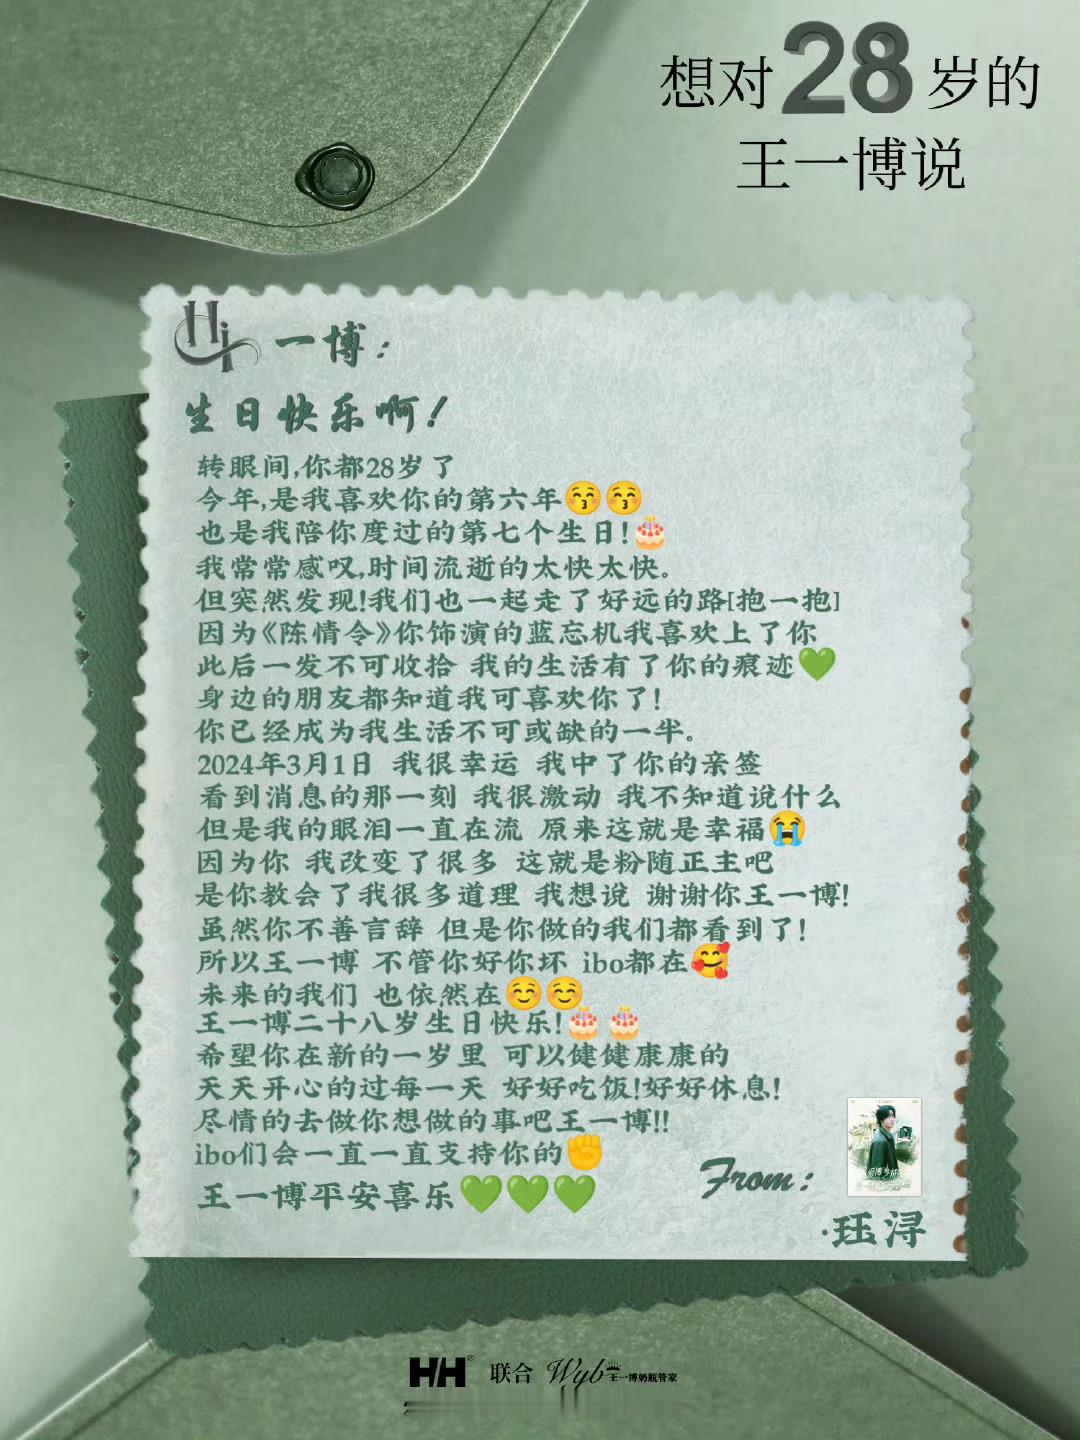 想对28岁的
王一博说
Hi 一博：
生日快乐啊！
转眼间,你都28岁了
今年,是我喜欢你的第六年😚😚
也是我陪你度过的第七个生日!🎂
我常常感叹,时间流逝的太快太快。
但突然发现!我们也一起走了好远的路[抱一抱]
因为《陈情令》你饰演的蓝忘机我喜欢上了你
此后一发不可收拾 我的生活有了你的痕迹💚
身边的朋友都知道我可喜欢你了!
你已经成为我生活不可或缺的一半。
2024年3月1日 我很幸运 我中了你的亲签
看到消息的那一刻 我很激动 我不知道说什么
但是我的眼泪一直在流 原来这就是幸福😭
因为你 我改变了很多 这就是粉随正主吧
是你教会了我很多道理 我想说 谢谢你王一博!
虽然你不善言辞 但是你做的我们都看到了!
所以王一博 不管你好你坏 ibo都在🥰
未来的我们 也依然在☺️☺️
王一博二十八岁生日快乐!🎂🎂
希望你在新的一岁里 可以健健康康的
天天开心的过每一天 好好吃饭!好好休息!
尽情的去做你想做的事吧王一博!!
ibo们会一直一直支持你的✊
王一博平安喜乐💚💚💚
From：
·珏浔
HH® 联合 Wyb王一博奶瓶管家